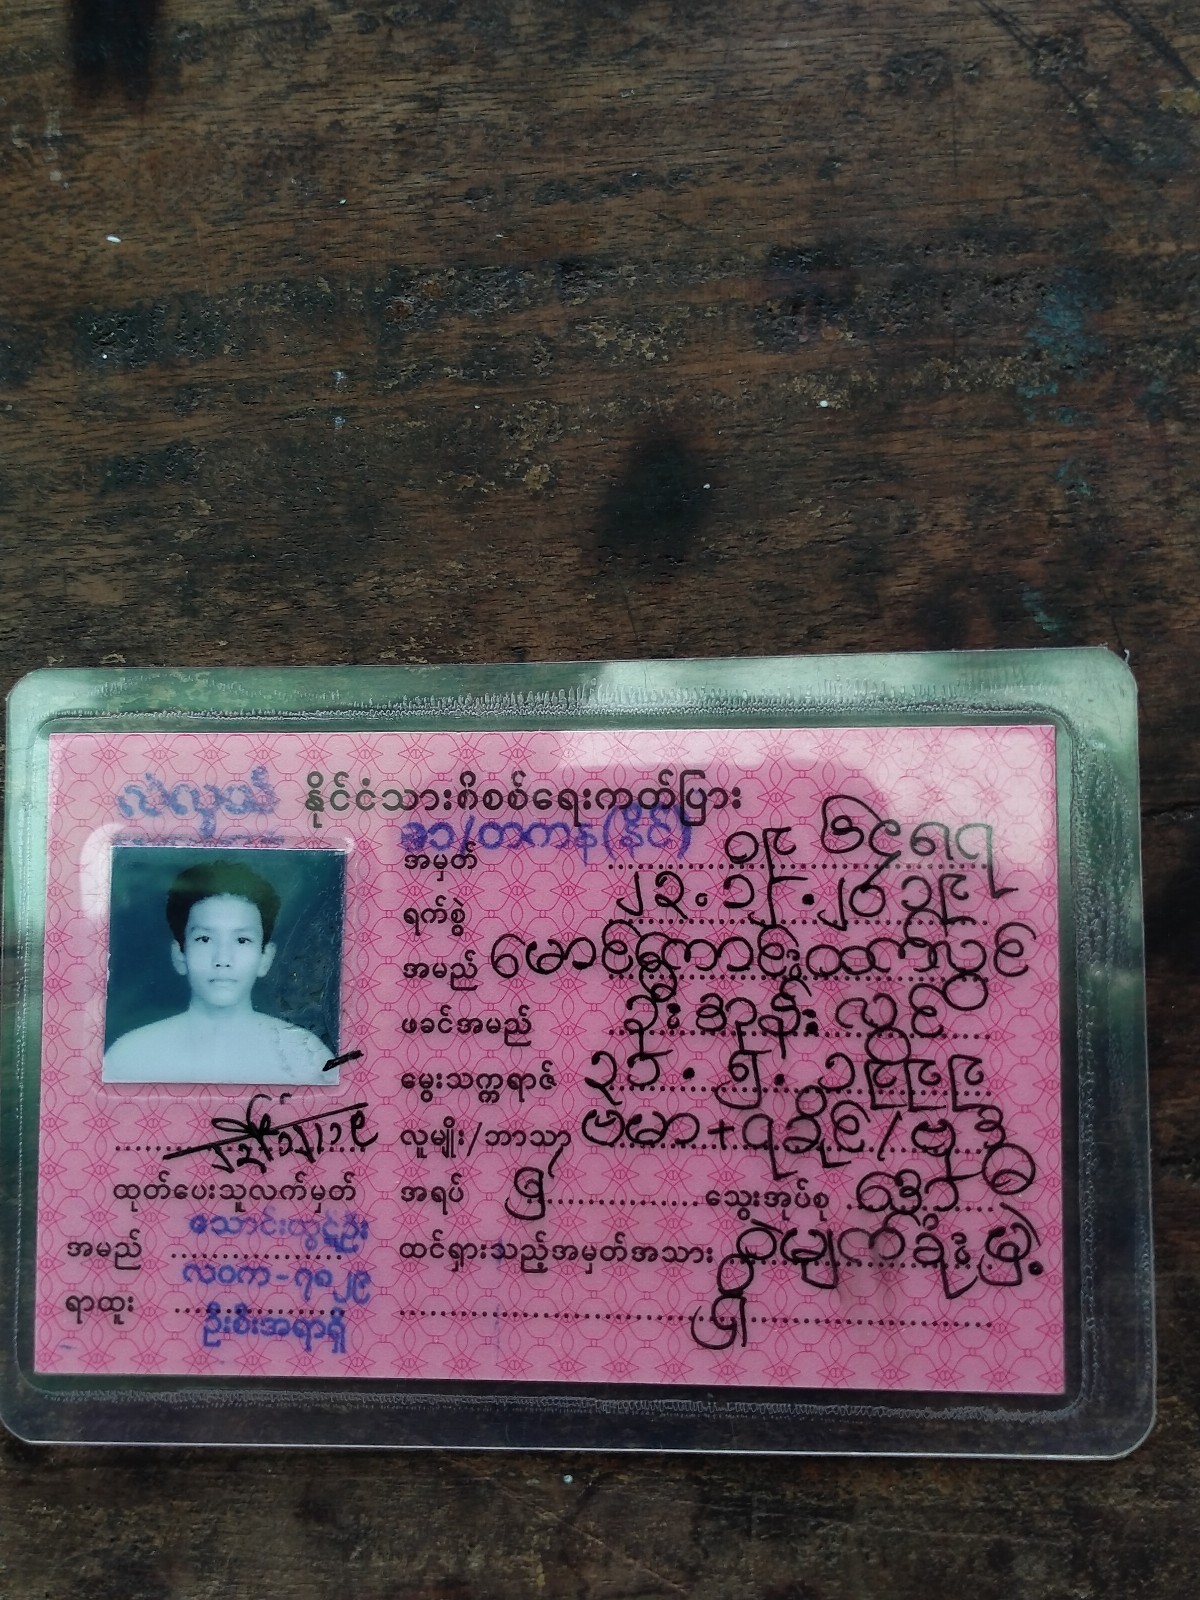 နိုင်ငံသားစိစစ်ရေးကတ်ပြား
အမှတ် ၁၁/တကန(နိုင်)
ရက်စွဲ ၂၃.၁၂.၂၀၁၉
အမည် မောင်ကောင်းထက်လွင်
ဖခင်အမည် ဦးအုန်းလွင်
မွေးသက္ကရာဇ် ၃၁.၅.၁၉၉၉
လူမျိုး/ဘာသာ ဗမာ+ရခိုင်/ဗုဒ္ဓ
အရပ် သွေးအုပ်စု
ထင်ရှားသည့်အမှတ်အသား ဝဲမျက်ခုံးမှဲ့
ထုတ်ပေးသူလက်မှတ်
အမည် သောင်းထွဋ်ဦး
လဝက-၇၈၂၉
ရာထူး ဦးစီးအရာရှိ